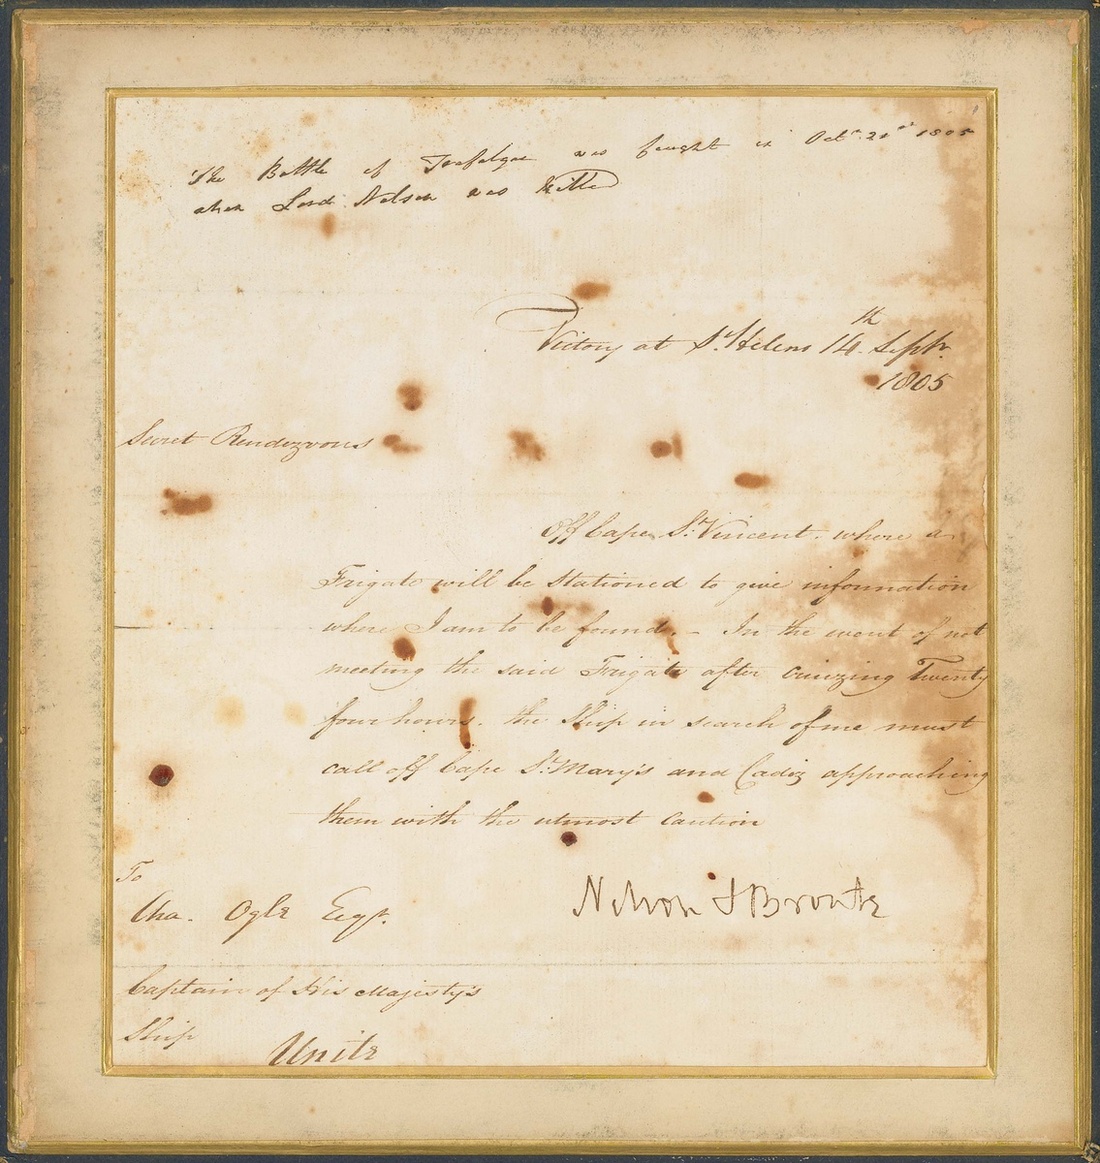 The Battle of Trafalgar was fought in Octr. 21st 1805
when Lord Nelson was killed
Victory at St. Helens 14th Septr.
1805
Secret Rendezvous
Off Cape St. Vincent. where a
Frigate will be stationed to give information
where I am to be found. – In the event of not
meeting the said Frigate after cruizing Twenty
four hours. the Ship in search of me must
call off Cape St. Mary's and Cadiz approaching
them with the utmost Caution
Nelson & Bronte
To
Cha. Ogle Esqr.
Captain of His Majesty's
Ship Unite